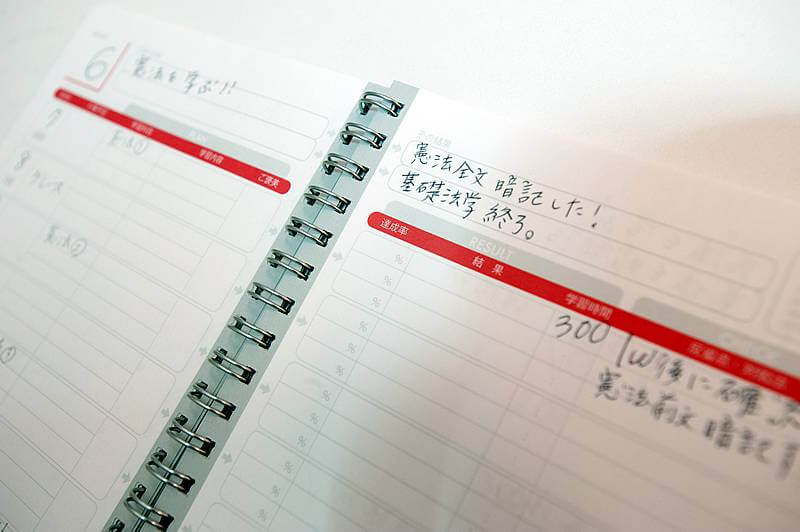 6
憲法を学ぶ!!
学習内容
ご褒美
7
憲法①
8
憲法②
その結果
憲法全文暗記した!
基礎法学 終了。
RESULT
達成率
結果
学習時間
%
%
%
%
%
%
%
%
%
%
300
1w後に確認
憲法前文暗記!